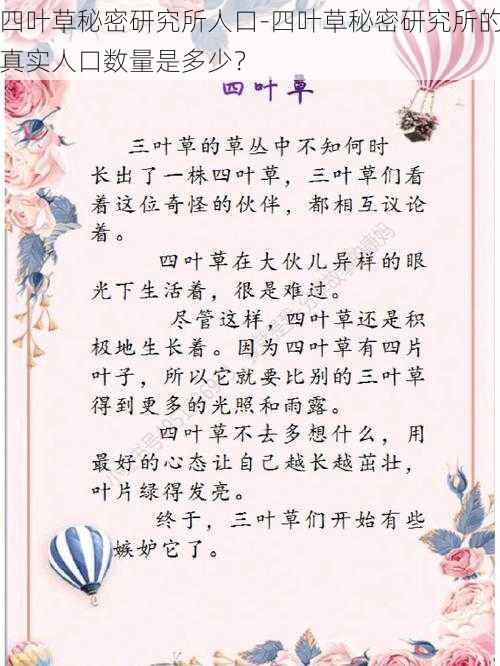 四叶草秘密研究所人口-四叶草秘密研究所的
真实人口数量是多少？
四叶草
三叶草的草丛中不知何时
长出了一株四叶草，三叶草们看
着这位奇怪的伙伴，都相互议论
着。
四叶草在大伙儿异样的眼
光下生活着，很是难过。
尽管这样，四叶草还是积
极地生长着。因为四叶草有四片
叶子，所以它就要比别的三叶草
得到更多的光照和雨露。
四叶草不去多想什么，用
最好的心态让自己越长越茁壮，
叶片绿得发亮。
终于，三叶草们开始有些
嫉妒它了。